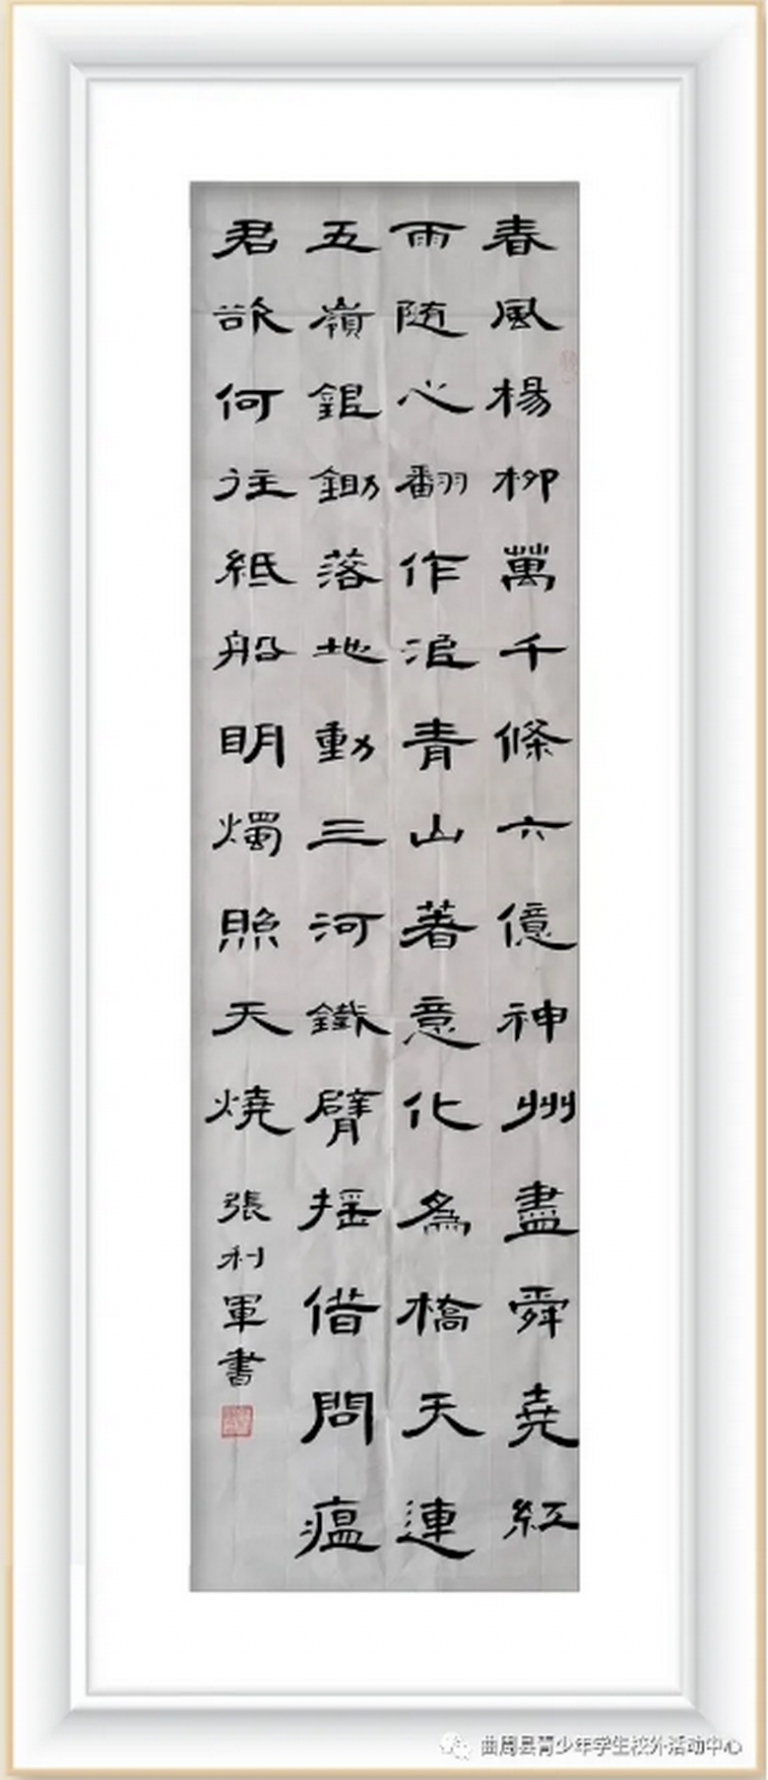 春風楊柳萬千條六億神州盡舜堯紅
雨随心翻作浪青山著意化為橋天連
五嶺銀鋤落地動三河鐵臂揺借問瘟
君欲何往紙船明燭照天燒
張利軍書
曲周县青少年学生校外活动中心